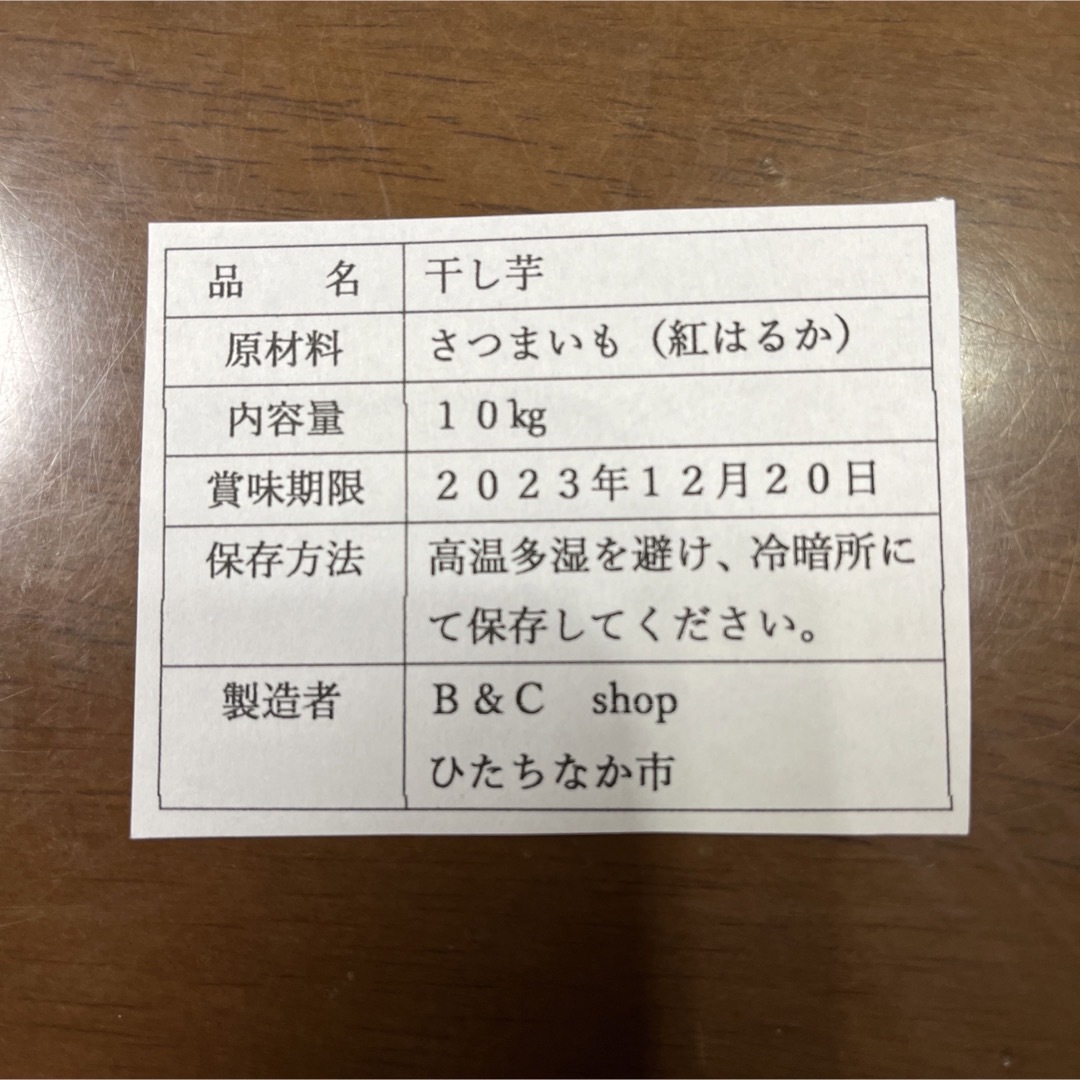 品　　名 干し芋
原材料 さつまいも（紅はるか）
内容量 １０㎏
賞味期限 ２０２３年１２月２０日
保存方法 高温多湿を避け、冷暗所に
て保存してください。
製造者 Ｂ＆Ｃ　shop
ひたちなか市